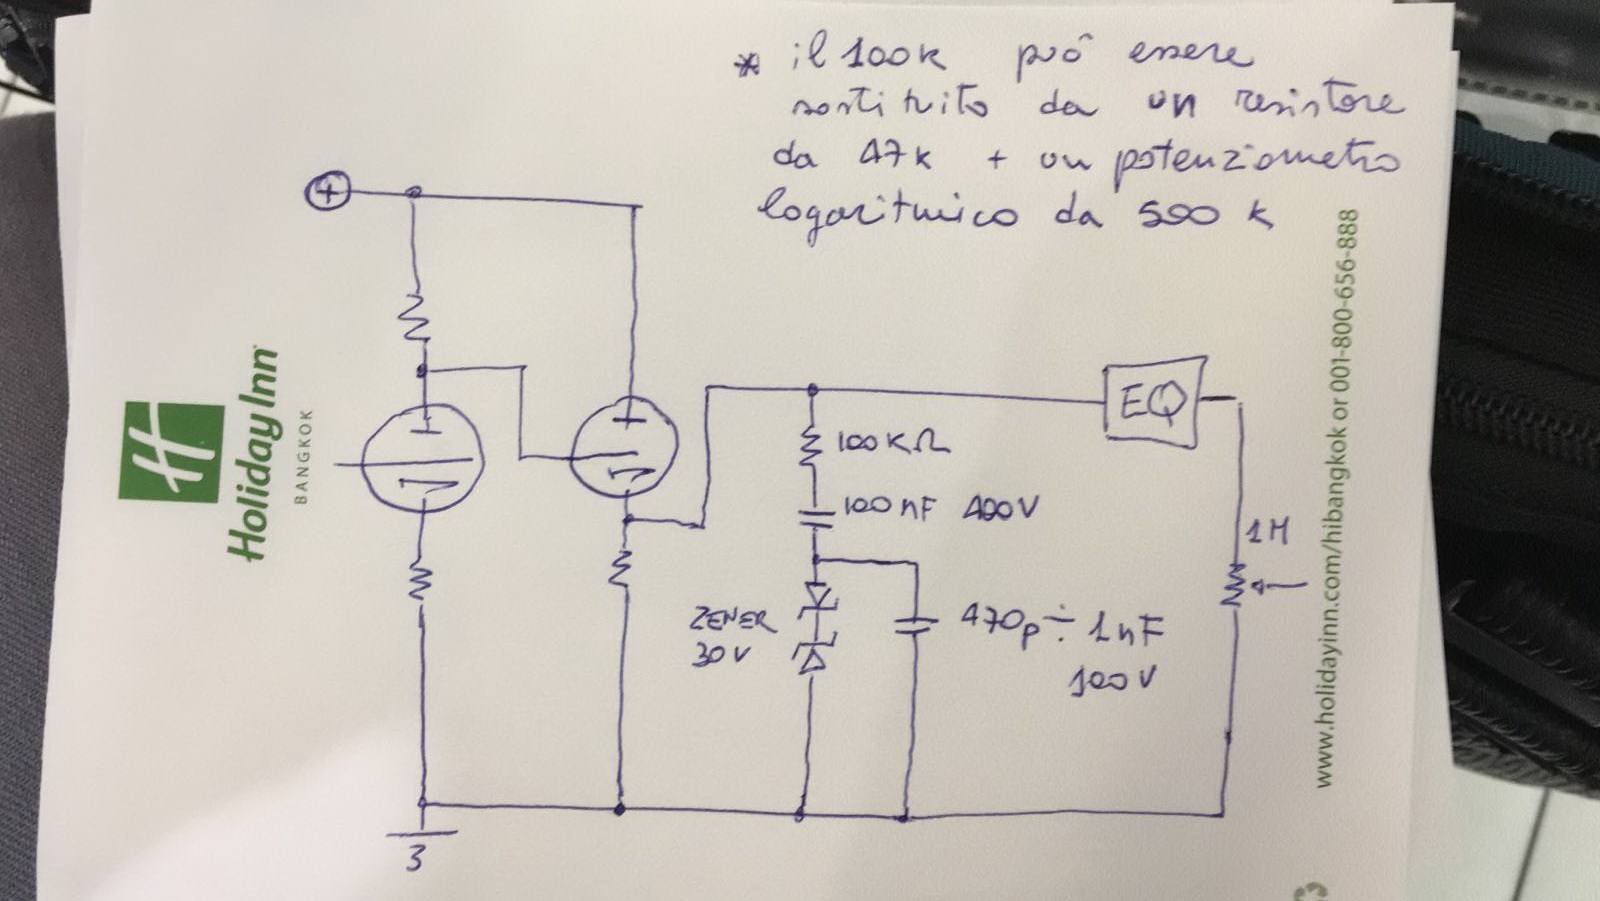 * il 100k può essere
sostituito da un resistore
da 47k + un potenziometro
logaritmico da 500 k
+
EQ
100KΩ
100 nF 400V
1M
ZENER
30V
470p ÷ 1nF
100V
3
H
Holiday Inn
BANGKOK
www.holidayinn.com/hibangkok or 001-800-656-888